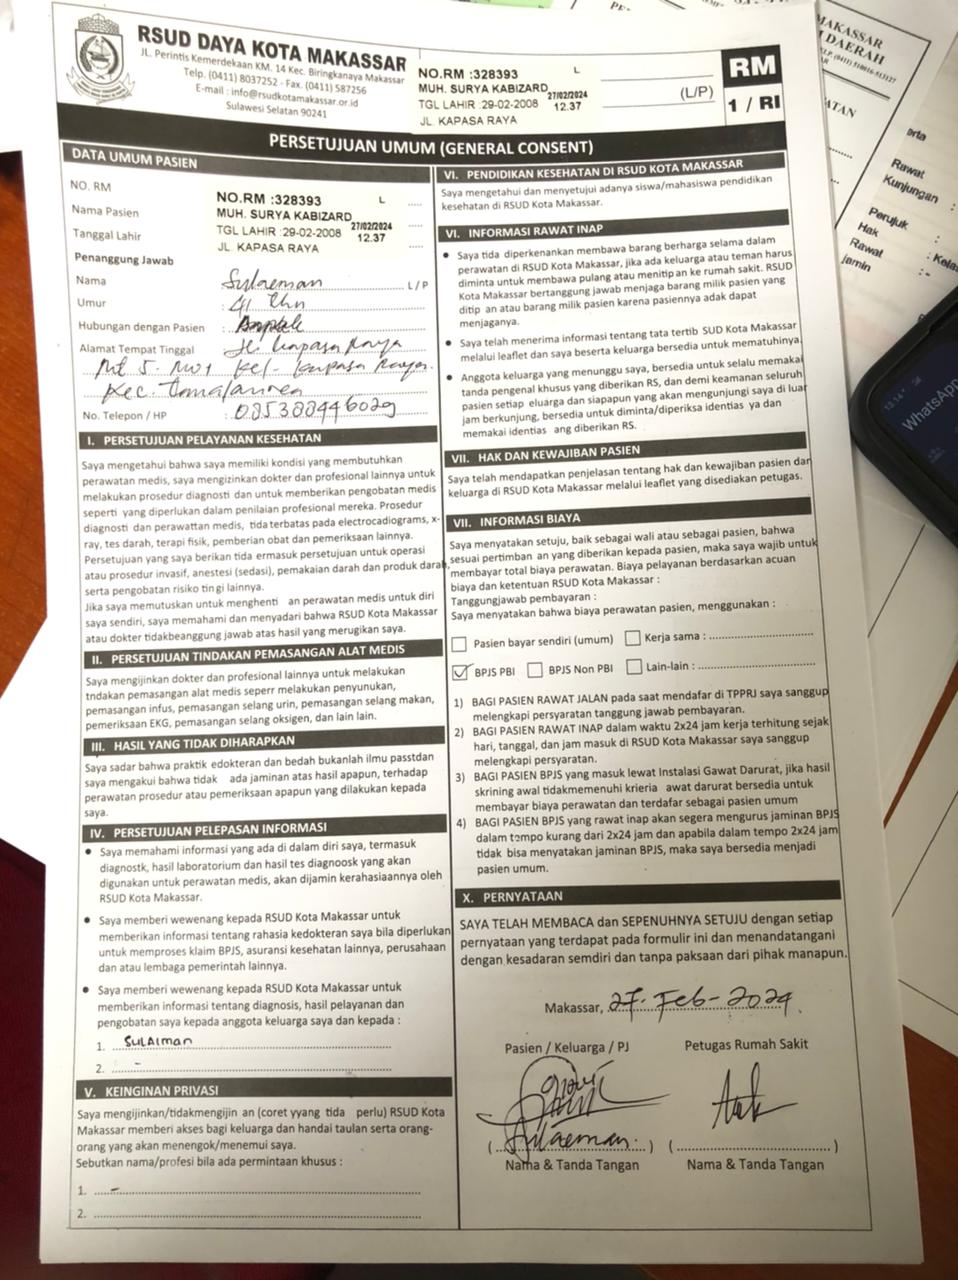 RSUD DAYA KOTA MAKASSAR
JL. Perintis Kemerdekaan KM. 14 Kec. Biringkanaya Makassar
Telp. (0411) 8037252 - Fax. (0411) 587256
E-mail : info@rsudkotamakassar.or.id
Sulawesi Selatan 90241
NO.RM :328393 L
MUH. SURYA KABIZARD 27/02/2024
TGL LAHIR :29-02-2008 12.37
JL. KAPASA RAYA
(L/P)
RM
1 / RI
PERSETUJUAN UMUM (GENERAL CONSENT)
DATA UMUM PASIEN
NO. RM
Nama Pasien
Tanggal Lahir
NO.RM :328393 L
MUH. SURYA KABIZARD 27/02/2024
TGL LAHIR :29-02-2008 12.37
JL. KAPASA RAYA
Penanggung Jawab
Nama : Sulaeman L/P
Umur : 41 thn
Hubungan dengan Pasien :
Alamat Tempat Tinggal : Jl. Kapasa Raya
Rt 5. Rw 1 Kel- Kapasa Raya.
Kec. Tamalanrea
No. Telepon / HP : 085388446029
I. PERSETUJUAN PELAYANAN KESEHATAN
Saya mengetahui bahwa saya memiliki kondisi yang membutuhkan
perawatan medis, saya mengizinkan dokter dan profesional lainnya untuk
melakukan prosedur diagnosti dan untuk memberikan pengobatan medis
seperti yang diperlukan dalam penilaian profesional mereka. Prosedur
diagnosti dan perawattan medis, tida terbatas pada electrocadiograms, x-
ray, tes darah, terapi fisik, pemberian obat dan pemeriksaan lainnya.
Persetujuan yang saya berikan tida ermasuk persetujuan untuk operasi
atau prosedur invasif, anestesi (sedasi), pemakaian darah dan produk darah,
serta pengobatan risiko tin gi lainnya.
Jika saya memutuskan untuk menghenti an perawatan medis untuk diri
saya sendiri, saya memahami dan menyadari bahwa RSUD Kota Makassar
atau dokter tidakbeanggung jawab atas hasil yang merugikan saya.
II. PERSETUJUAN TINDAKAN PEMASANGAN ALAT MEDIS
Saya mengijinkan dokter dan profesional lainnya untuk melakukan
tndakan pemasangan alat medis seperr melakukan penyunukan,
pemasangan infus, pemasangan selang urin, pemasangan selang makan,
pemeriksaan EKG, pemasangan selang oksigen, dan lain lain.
III. HASIL YANG TIDAK DIHARAPKAN
Saya sadar bahwa praktik edokteran dan bedah bukanlah ilmu passtdan
saya mengakui bahwa tidak ada jaminan atas hasil apapun, terhadap
perawatan prosedur atau pemeriksaan apapun yang dilakukan kepada
saya.
IV. PERSETUJUAN PELEPASAN INFORMASI
• Saya memahami informasi yang ada di dalam diri saya, termasuk
diagnostk, hasil laboratorium dan hasil tes diagnoosk yang akan
digunakan untuk perawatan medis, akan dijamin kerahasiaannya oleh
RSUD Kota Makassar.
• Saya memberi wewenang kepada RSUD Kota Makassar untuk
memberikan informasi tentang rahasia kedokteran saya bila diperlukan
untuk memproses klaim BPJS, asuransi kesehatan lainnya, perusahaan
dan atau lembaga pemerintah lainnya.
• Saya memberi wewenang kepada RSUD Kota Makassar untuk
memberikan informasi tentang diagnosis, hasil pelayanan dan
pengobatan saya kepada anggota keluarga saya dan kepada :
1. Sulaiman
2. -
V. KEINGINAN PRIVASI
Saya mengijinkan/tidakmengijin an (coret yyang tida perlu) RSUD Kota
Makassar memberi akses bagi keluarga dan handai taulan serta orang-
orang yang akan menengok/menemui saya.
Sebutkan nama/profesi bila ada permintaan khusus :
1. -
2.
VI. PENDIDIKAN KESEHATAN DI RSUD KOTA MAKASSAR
Saya mengetahui dan menyetujui adanya siswa/mahasiswa pendidikan
kesehatan di RSUD Kota Makassar.
VI. INFORMASI RAWAT INAP
• Saya tida diperkenankan membawa barang berharga selama dalam
perawatan di RSUD Kota Makassar, jika ada keluarga atau teman harus
diminta untuk membawa pulang atau menitip an ke rumah sakit. RSUD
Kota Makassar bertanggung jawab menjaga barang milik pasien yang
ditip an atau barang milik pasien karena pasiennya adak dapat
menjaganya.
• Saya telah menerima informasi tentang tata tertib SUD Kota Makassar
melalui leaflet dan saya beserta keluarga bersedia untuk mematuhinya.
• Anggota keluarga yang menunggu saya, bersedia untuk selalu memakai
tanda pengenal khusus yang diberikan RS, dan demi keamanan seluruh
pasien setiap eluarga dan siapapun yang akan mengunjungi saya di luar
jam berkunjung, bersedia untuk diminta/diperiksa identias ya dan
memakai identias ang diberikan RS.
VII. HAK DAN KEWAJIBAN PASIEN
Saya telah mendapatkan penjelasan tentang hak dan kewajiban pasien dan
keluarga di RSUD Kota Makassar melalui leaflet yang disediakan petugas.
VII. INFORMASI BIAYA
Saya menyatakan setuju, baik sebagai wali atau sebagai pasien, bahwa
sesuai pertimban an yang diberikan kepada pasien, maka saya wajib untuk
membayar total biaya perawatan. Biaya pelayanan berdasarkan acuan
biaya dan ketentuan RSUD Kota Makassar :
Tanggungjawab pembayaran :
Saya menyatakan bahwa biaya perawatan pasien, menggunakan :
Pasien bayar sendiri (umum) Kerja sama :
BPJS PBI BPJS Non PBI Lain-lain :
1) BAGI PASIEN RAWAT JALAN pada saat mendafar di TPPRJ saya sanggup
melengkapi persyaratan tanggung jawab pembayaran.
2) BAGI PASIEN RAWAT INAP dalam waktu 2x24 jam kerja terhitung sejak
hari, tanggal, dan jam masuk di RSUD Kota Makassar saya sanggup
melengkapi persyaratan.
3) BAGI PASIEN BPJS yang masuk lewat Instalasi Gawat Darurat, jika hasil
skrining awal tidakmemenuhi krieria awat darurat bersedia untuk
membayar biaya perawatan dan terdafar sebagai pasien umum
4) BAGI PASIEN BPJS yang rawat inap akan segera mengurus jaminan BPJS
dalam tempo kurang dari 2x24 jam dan apabila dalam tempo 2x24 jam
tidak bisa menyatakan jaminan BPJS, maka saya bersedia menjadi
pasien umum.
X. PERNYATAAN
SAYA TELAH MEMBACA dan SEPENUHNYA SETUJU dengan setiap
pernyataan yang terdapat pada formulir ini dan menandatangani
dengan kesadaran semdiri dan tanpa paksaan dari pihak manapun.
Makassar, 27. Feb-2024.
Pasien / Keluarga / PJ Petugas Rumah Sakit
(Sulaeman.) ( )
Nama & Tanda Tangan Nama & Tanda Tangan
MAKASSAR
DAERAH
Rawat
Kunjungan :
Perujuk :
Hak
Rawat : Kelas
jamin :-
13.14
WhatsApp